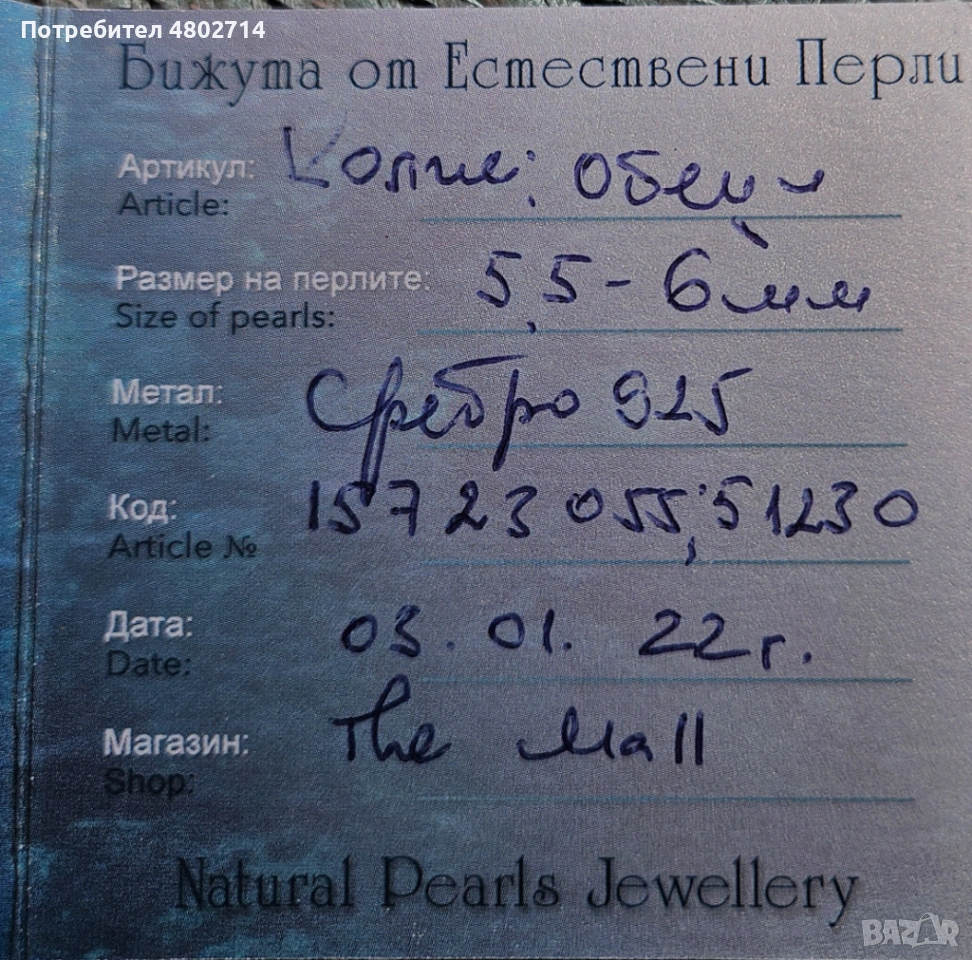 Потребител 4802714
Бижута от Естествени Перли
Артикул: Колие; обеци
Article:
Размер на перлите: 5,5-6мм
Size of pearls:
Метал: Сребро 925
Metal:
Код: 15723055; 51230
Article №
Дата: 03.01.22г.
Date:
Магазин: The Mall
Shop:
Natural Pearls Jewellery
BAZAR